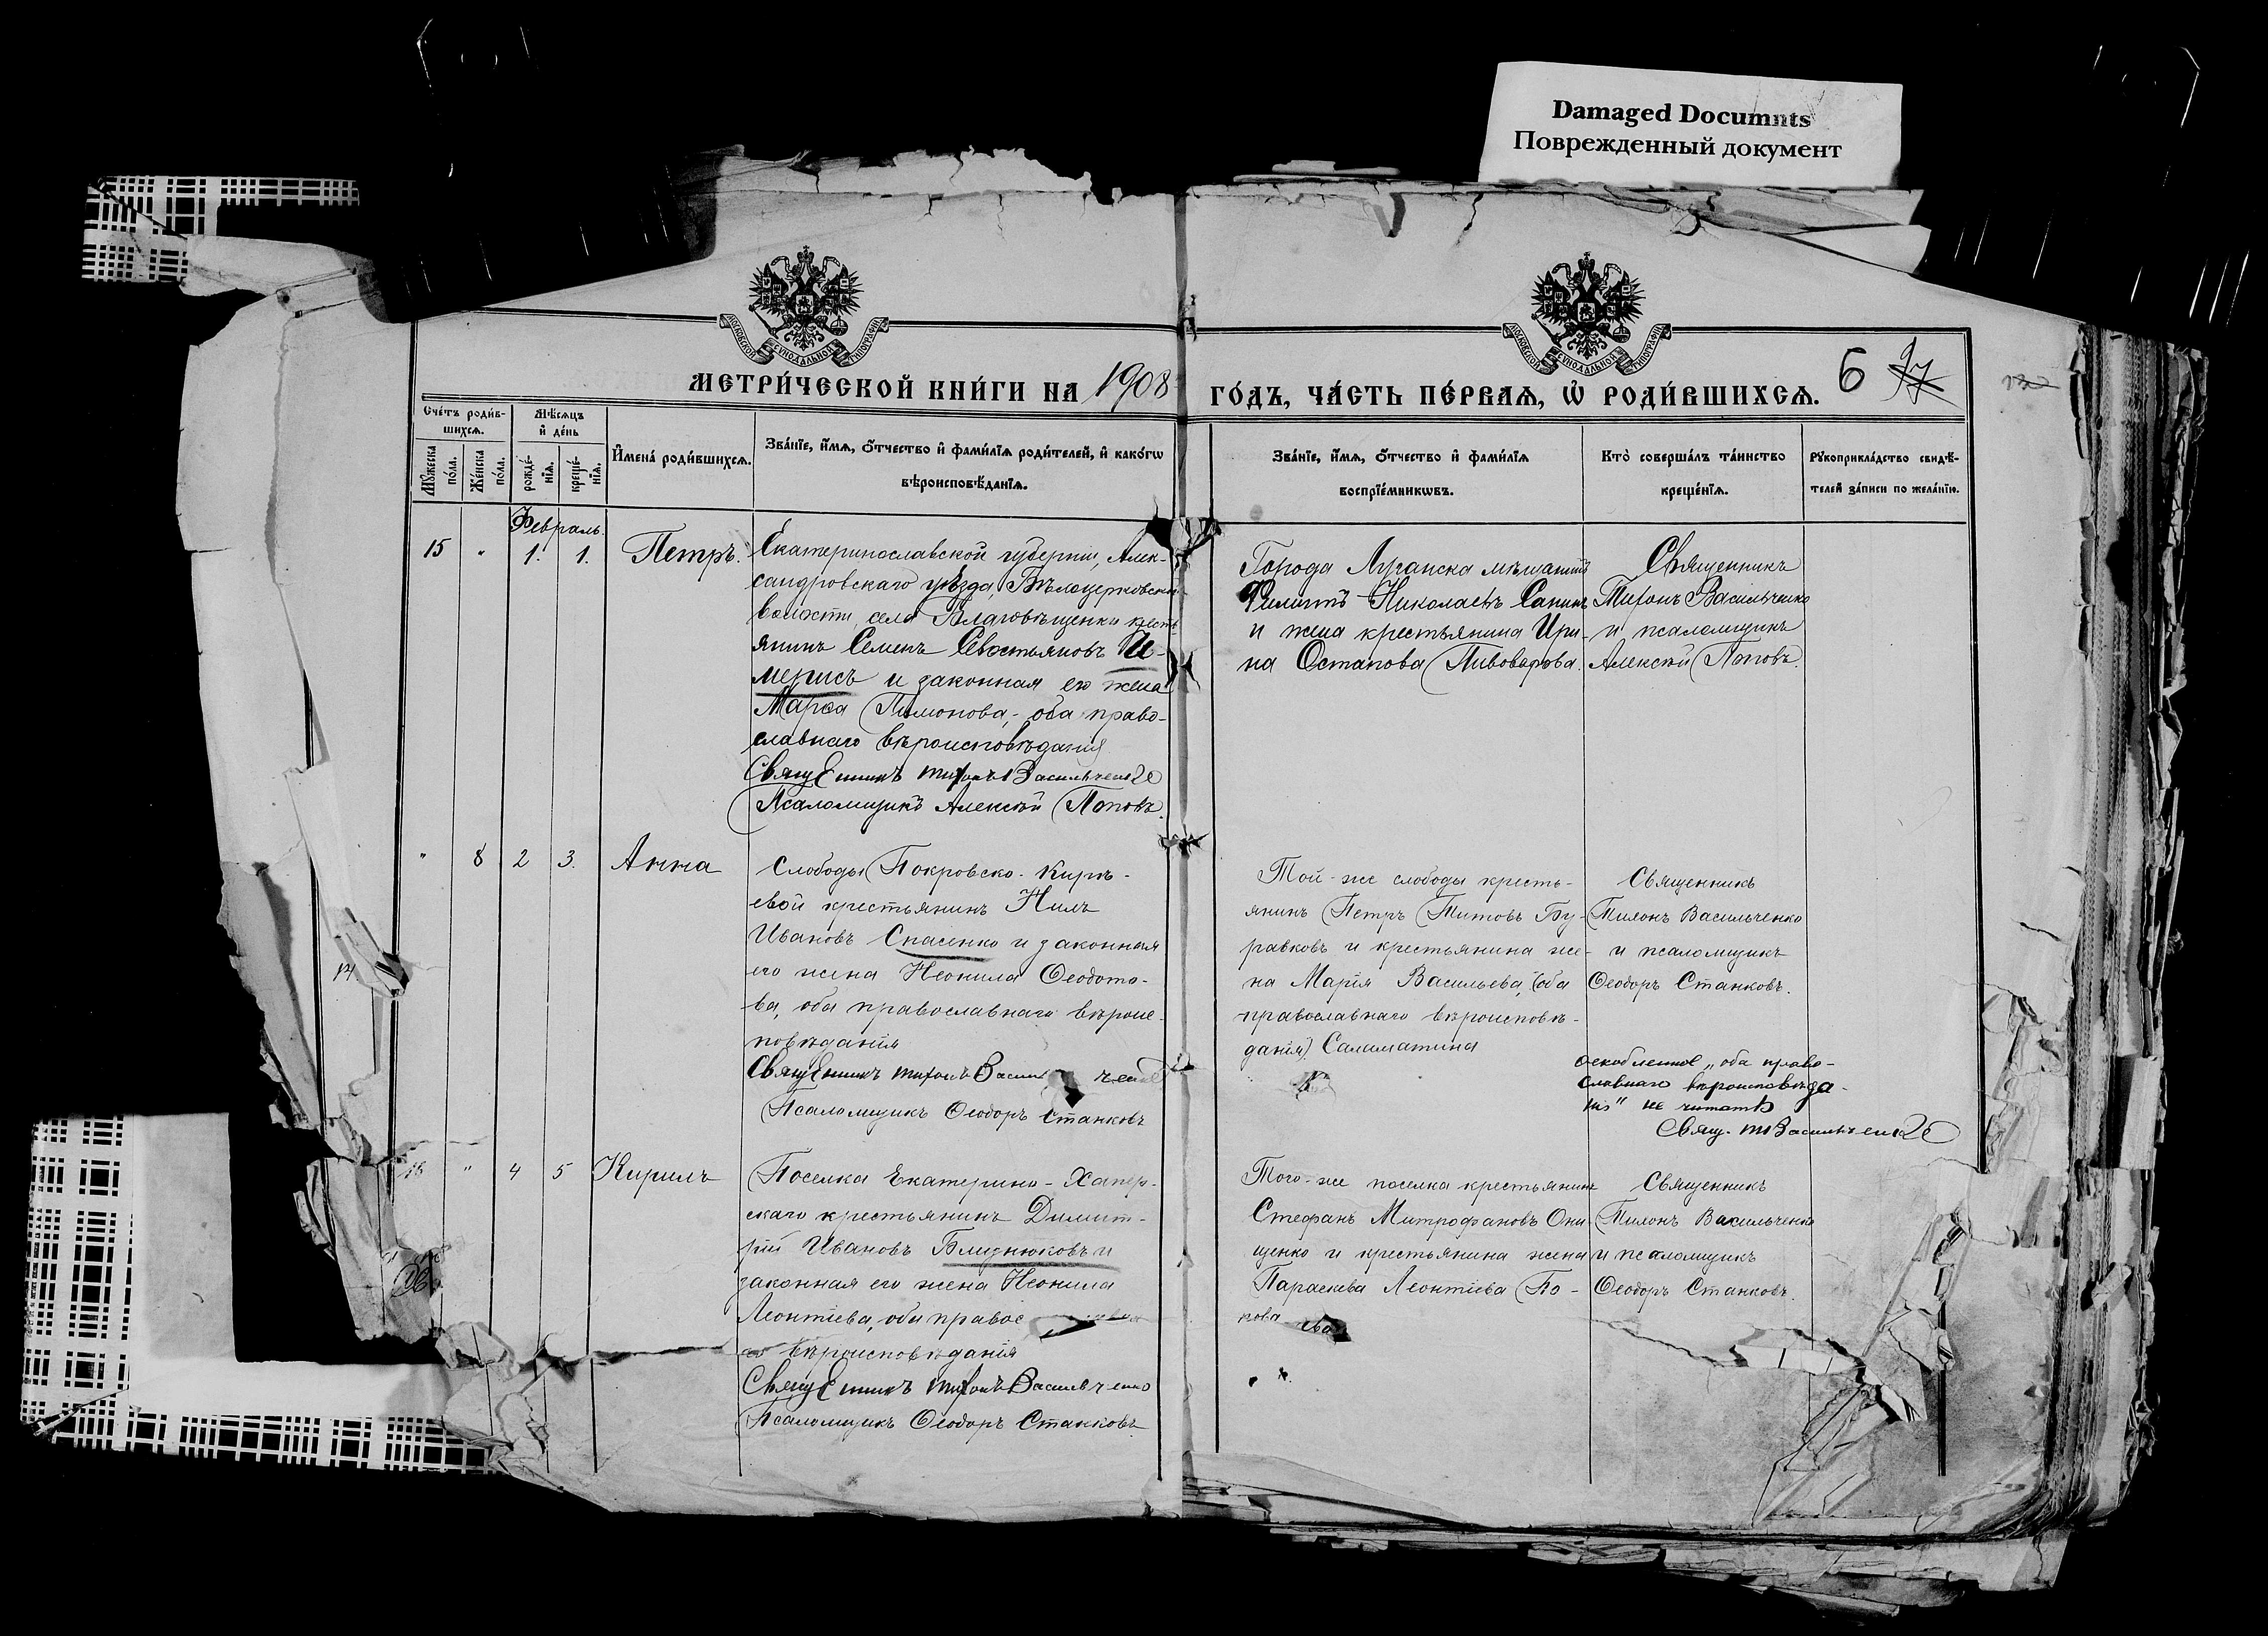 Damaged Documnts
Поврежденный документ
МОСКОВСКОЙ СѴНОДАЛЬНОЙ ТИПОГРАФІИ
МОСКОВСКОЙ СѴНОДАЛЬНОЙ ТИПОГРАФІИ
МЕТРИ́ЧЕСКОЙ КНИ́ГИ НА 1908
ГО́ДЪ, ЧА́СТЬ ПЕ́РВАѦ, Ѡ҆ РОДИ́ВШИХСѦ. 6
Сче́тъ роди́в-
шихсѧ.
Мѣ́сѧцъ
и҆ де́нь
Мꙋ́жеска
по́ла.
Же́нска
по́ла.
рожде́-
нїѧ.
креще́-
нїѧ.
И҆мена̀ роди́вшихсѧ.
Зва́нїе, и҆́мѧ, ѻ҆́тчество и҆ фами́лїѧ роди́телей, и҆ како́гѡ
вѣроисповѣ́данїѧ.
Зва́нїе, и҆́мѧ, ѻ҆́тчество и҆ фами́лїѧ
воспрїе́мникѡвъ.
Кто̀ соверша́лъ та́инство
креще́нїѧ.
Рꙋкоприкла́дство свидѣ́-
телей за́писи по жела́нїю.
Февраль.
15 " 1. 1. Петръ.
Екатеринославской губерніи, Алек-
сандровскаго уѣзда, Бѣлоцерковской
волости, села Благовѣщенки кресть
янинъ Семенъ Севостьяновъ И-
мерисъ и законная его жена
Марѳа Пимонова, оба право-
славнаго вѣроисповѣданія
Священникъ Тихонъ Васильченко
Псаломщикъ Алексѣй Поповъ.
Города Луганска мѣщанинъ
Филиппъ Николаевъ Санинъ
и жена крестьянина Ири-
на Остапова Пивоварова.
Священникъ
Тихонъ Васильченко
и псаломщикъ
Алексѣй Поповъ.
" 8 2 3. Анна
Слободы Покровско-Кирѣ-
евой крестьянинъ Нилъ
Ивановъ Спасенко и законная
его жена Неонила Ѳеодото-
ва, оба православнаго вѣроис-
повѣданія
Священникъ Тихонъ Василь ченко
Псаломщикъ Ѳеодоръ Станковъ
Той-же слободы кресть-
янинъ Петръ Титовъ Бу-
равковъ и крестьянина же-
на Марія Васильева, (оба
православнаго вѣроисповѣ-
данія) Саламатина
Священникъ
Тихонъ Васильченко
и псаломщикъ
Ѳеодоръ Станковъ.
оскобленное „оба право-
славнаго вѣроисповѣда-
нія" не читать
Свящ. Т. Васильченко
16 " 4 5 Кирилъ
Поселка Екатерино-Хапер-
скаго крестьянинъ Димит-
рій Ивановъ Блиднюковъ и
законная его жена Неонила
Леонтіева, оба правос
вѣроисповѣданія
Священникъ Тихонъ Васильченко
Псаломщикъ Ѳеодоръ Станковъ.
Того-же поселка крестьянинъ
Стефанъ Митрофановъ Они-
щенко и крестьянина жена
Параскева Леонтіева По-
кова
Священникъ
Тихонъ Васильченко
и псаломщикъ
Ѳеодоръ Станковъ.